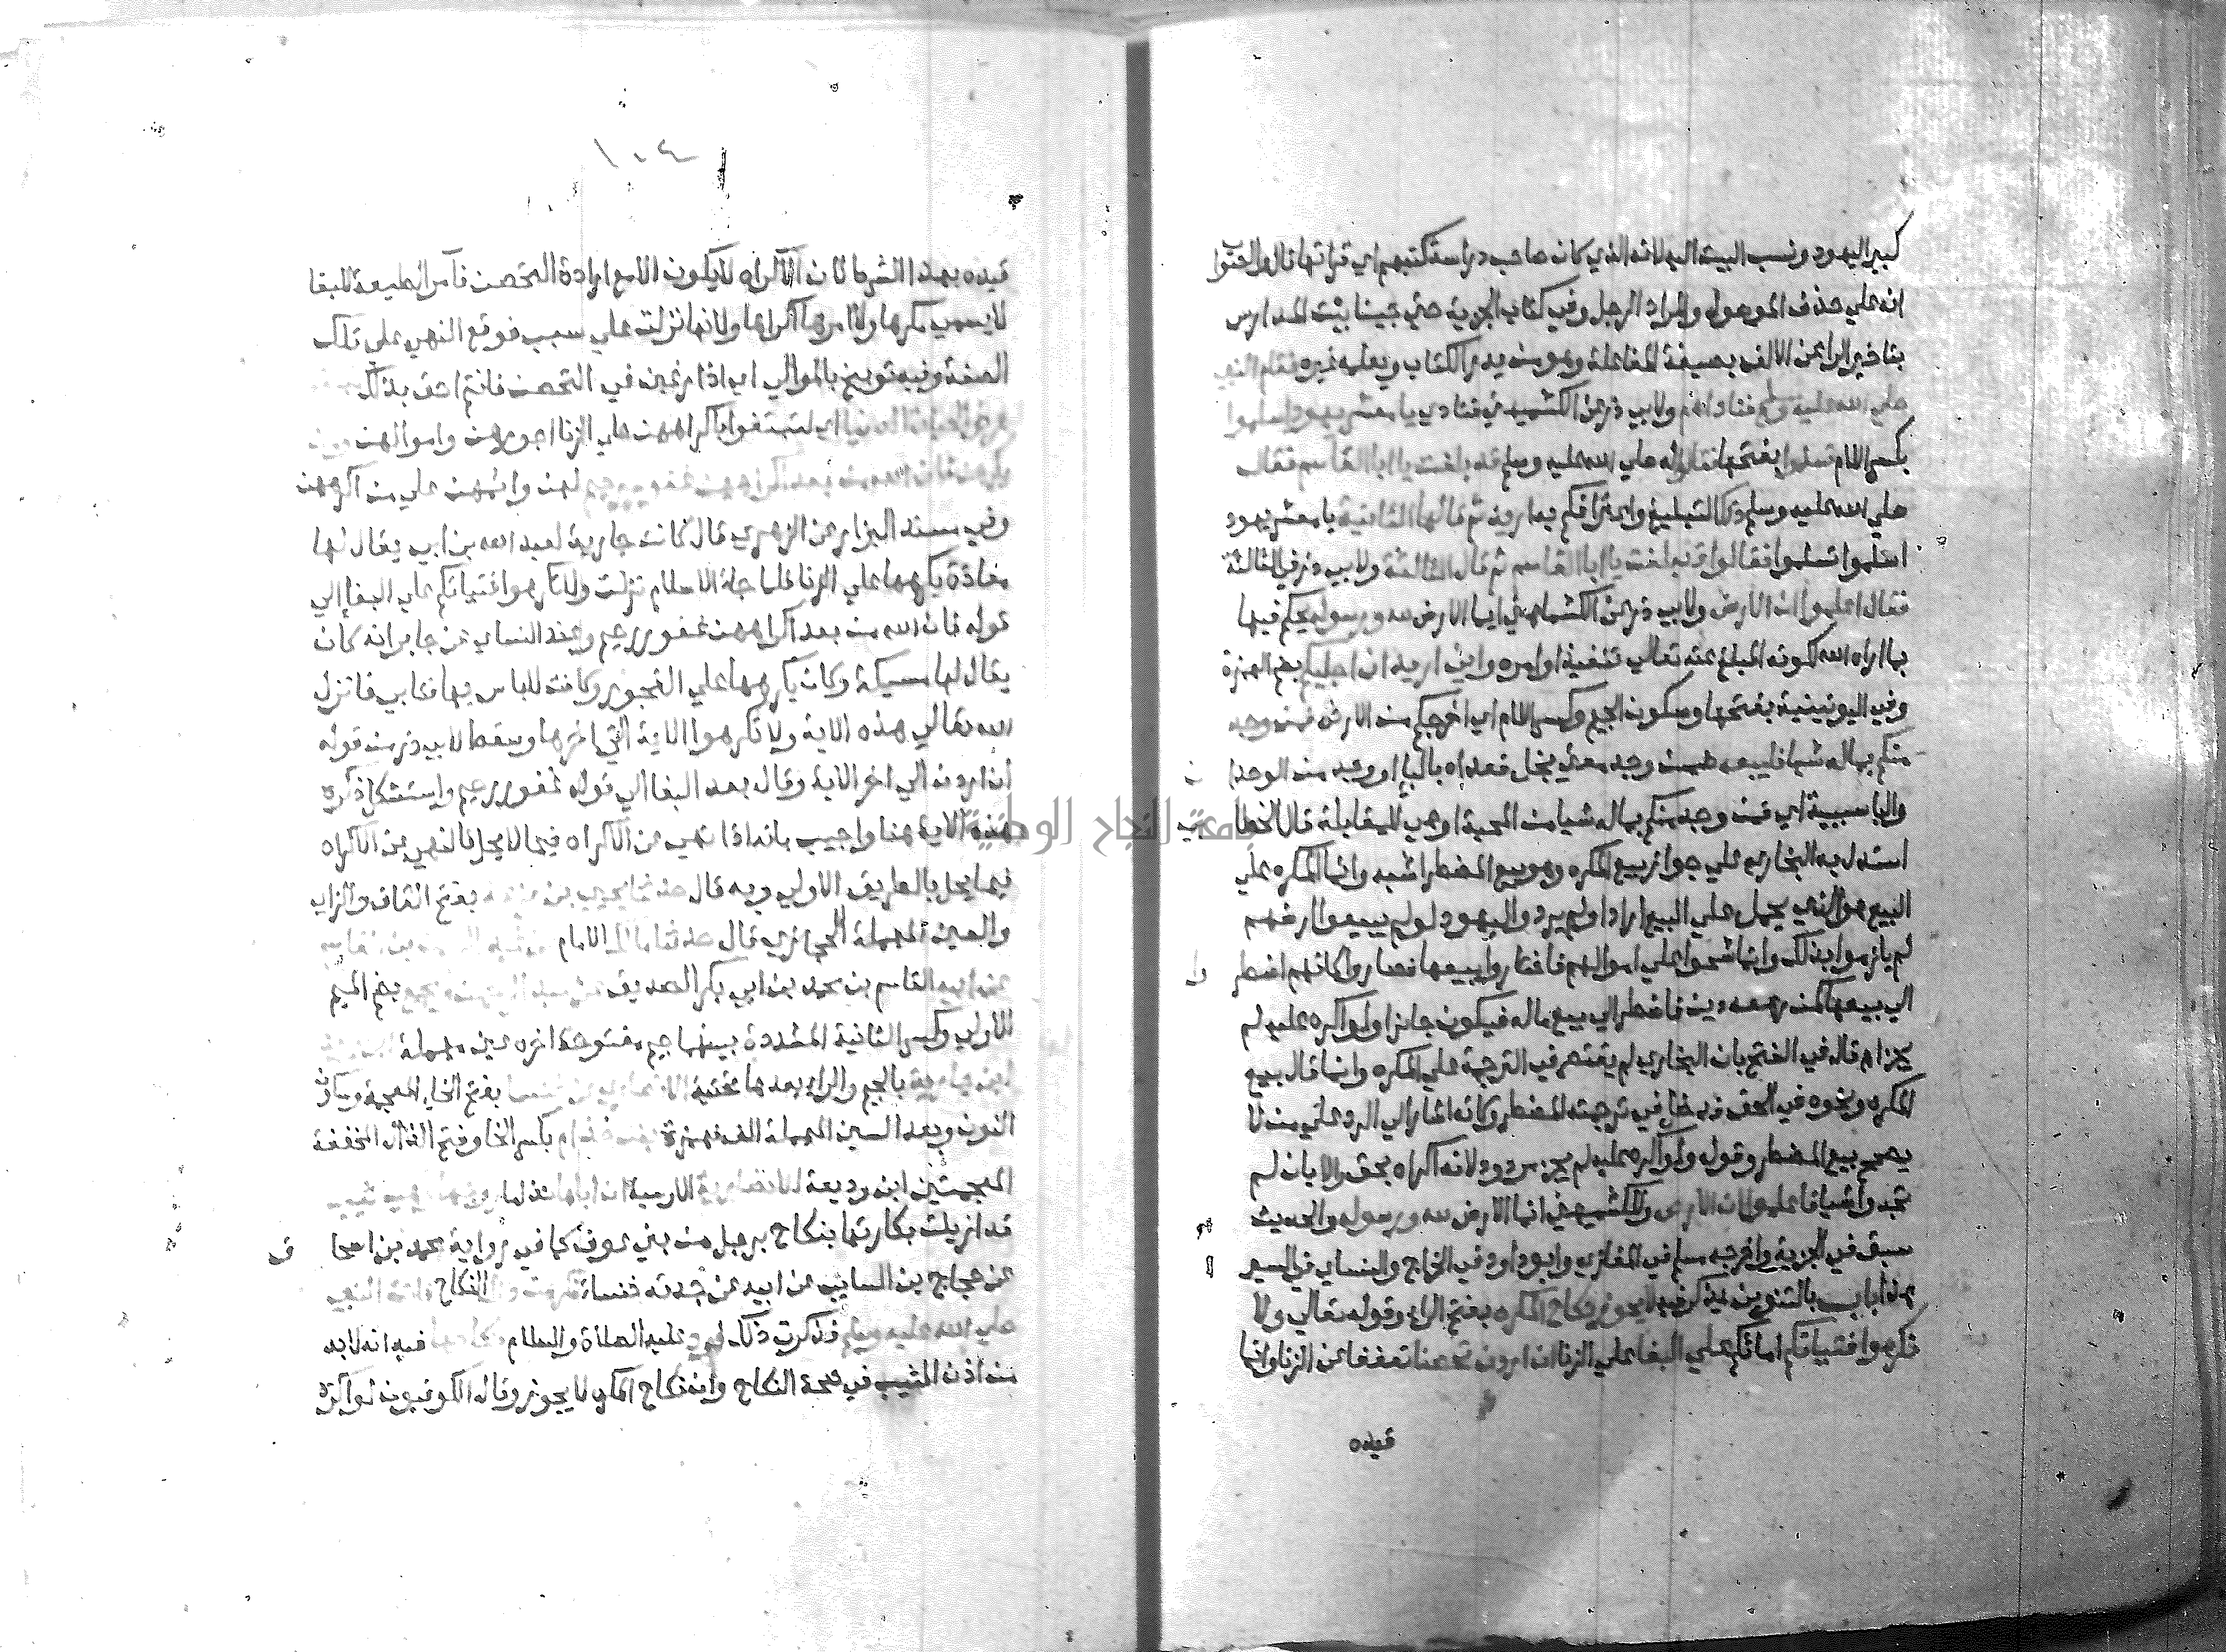 كبير اليهود ونسب البيت اليه لانه الذي كان صاحب دراسة كتبهم اي قراتها قال والصواب
انه علي حذف الموصوف والمراد الرجل وفي كتاب الجزية حتي جينا بيت المدارس
بتاخير الراعن الالف بصيغة المفاعلة وهو من يدرس الكتاب ويعلمه غيره فقام النبي
صلي الله عليه وسلم فناداهم ولابي ذر عن الكشميهني فنادي يا معشر يهود اسلموا
بكسر اللام تسلموا بفتحها فقالوا له صلي الله عليه وسلم قد بلغت يا ابا القاسم فقال
صلي الله عليه وسلم ذلك التبليغ واعترافكم به اريد ثم قالها الثانية يا معشر يهود
اسلموا تسلموا فقالوا قد بلغت يا ابا القاسم ثم قال الثالثة ولابي ذر في الثالثة
فقال اعلموا ان الارض ولابي ذر عن الكشميهني انما الارض لله ورسوله يحكم فيها
بما اراه الله لكونه المبلغ عنه تعالي تنفيذ اوامره واني اريد ان اجليكم بضم الهمزة
وفي اليونينية بفتحها وسكون الجيم وكسر اللام اي اخرجكم من الارض فمن وجد
منكم بماله شيا فليبعه ضمن وجد معني بخل فعداه بالبا او وجد من الوجدا ن
والبا سببية اي فمن وجد منكم بماله شيا من المحبة او هي للمقابلة قال الخطا بي
استدل به البخاري علي جواز بيع المكره وهو ببيع المضطر اشبه وانما المكره علي
البيع هو الذي يحمل علي البيع اراد او لم يرد واليهود لو لم يبيعوا ارضهم
لم يلزموا بذلك وانما شحوا علي اموالهم فاختاروا بيعها فصاروا كانهم اضطر وا
الي بيعها كمن رهقه دين فاضطر الي بيع ماله فيكون جايزا ولو اكره عليه لم
يجز اه قال في الفتح بان البخاري لم يقتصر في الترجمة علي المكره وانما قال بيع
المكره ونحوه في الحق فدخل في ترجمته المضطر وكانه اشار الي الرد علي من لا
يصحح بيع المضطر وقوله ولو اكره عليه لم يجز مردود لانه اكراه بحق والا بان لم
تجدوا شيا فاعلموا ان الارض وللكشميهني انما الارض لله ورسوله والحديث
سبق في الجزية واخرجه مسلم في المغازي وابو داود في الخراج والنساي في السير
هذا باب بالتنوين يذكر فيه لا يجوز نكاح المكره بفتح الراء وقوله تعالي ولا
تكرهوا فتياتكم امائكم علي البغا علي الزنا ان اردن تحصنا تعففا عن الزنا وانما
قيده
١٠٤
قيده بهذا الشرط لان الاكراه لا يكون الا مع ارادة التحصن فآمر المطيعة للبغا
لا يسمي مكرها ولا امره اكراها ولانها نزلت علي سبب فوقع النهي علي تلك
الصفة وفيه توبيخ بالموالي اي اذا رغبن في التحصن فانتم احق بذلك
عرض الحياة الدنيا اي لتبتغوا باكراههن علي الزنا اجورهن واموالهن ومن
يكرههن فان الله من بعد اكراههن غفور رحيم لهن واثمهن علي من اكرههن
وفي مسند البزار عن الزهري قال كانت جارية لعبد الله بن ابي يقال لها
معاذة يكرهها علي الزنا فلما جاء الاسلام نزلت ولا تكرهوا فتياتكم علي البغا الي
قوله فان الله من بعد اكراههن غفور رحيم وعند النساي عن جابر انه كان
يقال لها مسيكة وكان يكرهها علي الفجور وكانت لاباس بها فتابي فانزل
الله تعالي هذه الاية ولا تكرهوا الاية الي اخرها وسقط لابي ذر من قوله
ان اردن الي اخر الاية وقال بعد البغا الي قوله غفور رحيم واستشكل ذكره
هذه الاية هنا واجيب بانه اذا نهي عن الاكراه فيما لا يحل فالنهي عن الاكراه
فيما يحل بالطريق الاولي وبه قال حدثنا يحيي بن قزعة بفتح القاف والزاي
والعين المهملة الحجازي قال حدثنا مالك الامام عن عبد الرحمن بن القاسم
عن ابيه القاسم بن محمد بن ابي بكر الصديق عن عبد الرحمن ومجمع بضم الميم
الاولي وكسر الثانية المشددة بينهما جيم مفتوحة اخره عين مهملة
ابني يزيد بن جارية بالجيم والراء بعدها تحتية الانصاري عن خنسا بفتح الخاء المعجمة وسكون
النون وبعد السين المهملة الف فهمزة بنت خذام بكسر الخا وفتح الذال المخففة
المعجمتين ابن وديعة الانصارية الاوسية ان اباها زوجها وهي ثيب
قد ازيلت بكارتها بنكاح رجل من بني عوف كما في رواية محمد بن اسحا ق
عن حجاج بن السايب عن ابيه عن جدته خنساء فكرهت ذلك النكاح فاتت النبي
صلي الله عليه وسلم فذكرت ذلك له عليه الصلاة والسلام فرد نكاحها فيه انه لابد
من اذن الثيب في صحة النكاح وان نكاح المكره لا يجوز وقال الكوفيون لو اكره
جامعة النجاح الوطنية